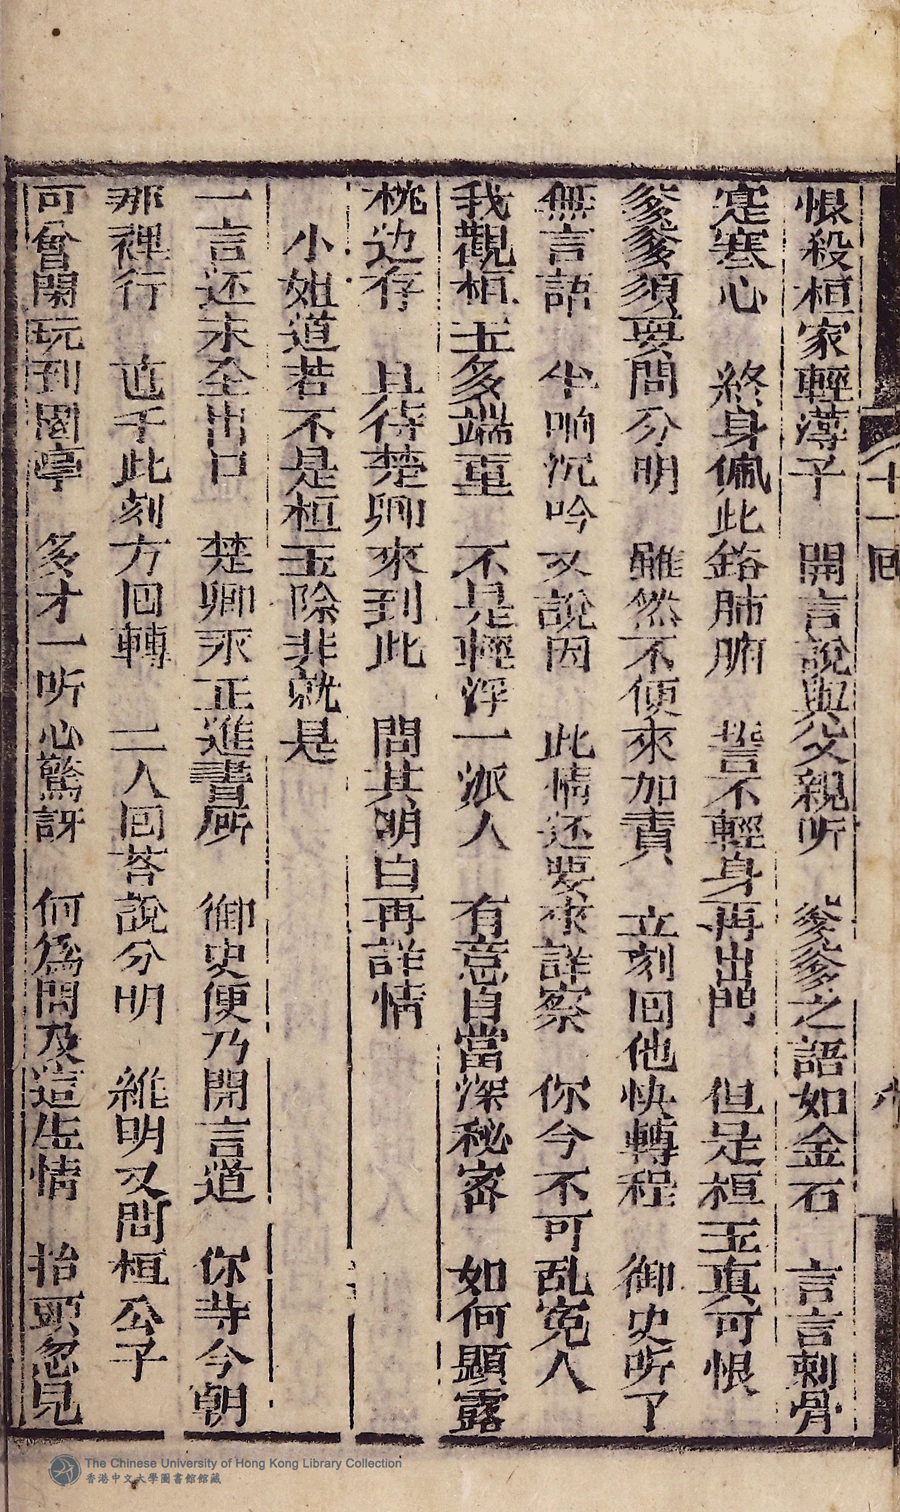 十一回
恨殺桓家輕薄子　開言說與父親听　爹爹之語如金石　言言刺骨
寔寒心　終身佩此銘肺腑　誓不輕身再出門　但是桓玉真可恨
爹爹須要問分明　雖然不便來加責　立刻回他快轉程　御史听了
無言語　半晌沉吟又說因　此情还要來詳察　你今不可乱冤人
我觀桓玉多端重　不是輕浮一派人　有意自當深秘密　如何顯露
枕边存　且待楚卿來到此　問其明白再詳情
小姐道若不是桓玉除非就是
一言还未全出口　楚卿永正進書房　御史便乃開言道　你等今朝
那裡行　直于此刻方回轉　二人回荅說分明　維明又問桓公子
可會閑玩到園亭　多才一听心驚訝　何為問及這生情　抬頭忽見
The Chinese University of Hong Kong Library Collection
香港中文大學圖書館館藏